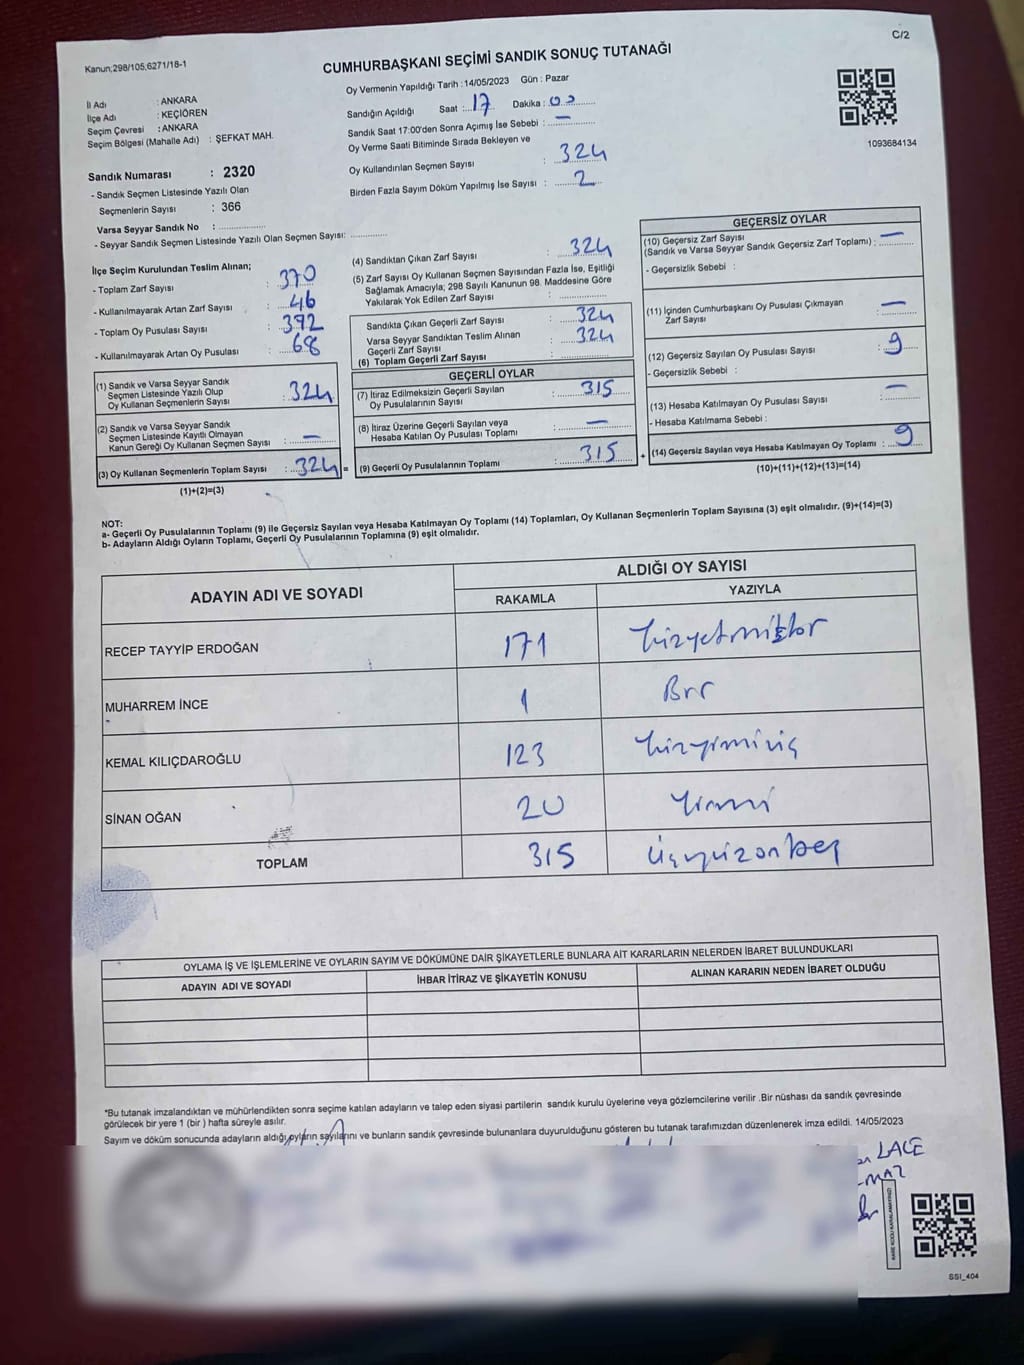 C/2
Kanun;298/105,6271/18-1
CUMHURBAŞKANI SEÇİMİ SANDIK SONUÇ TUTANAĞI
Oy Vermenin Yapıldığı Tarih : 14/05/2023 Gün : Pazar
İl Adı : ANKARA
İlçe Adı : KEÇİÖREN
Seçim Çevresi : ANKARA
Seçim Bölgesi (Mahalle Adı) : ŞEFKAT MAH.
Sandığın Açıldığı Saat : 17 Dakika : 00
Sandık Saat 17:00'den Sonra Açımış İse Sebebi : —
Oy Verme Saati Bitiminde Sırada Bekleyen ve
Oy Kullandırılan Seçmen Sayısı : 324
Birden Fazla Sayım Döküm Yapılmış İse Sayısı : 2
1093684134
Sandık Numarası : 2320
- Sandık Seçmen Listesinde Yazılı Olan
Seçmenlerin Sayısı : 366
Varsa Seyyar Sandık No :
- Seyyar Sandık Seçmen Listesinde Yazılı Olan Seçmen Sayısı:
İlçe Seçim Kurulundan Teslim Alınan;
- Toplam Zarf Sayısı : 370
- Kullanılmayarak Artan Zarf Sayısı : 46
- Toplam Oy Pusulası Sayısı : 392
- Kullanılmayarak Artan Oy Pusulası : 68
(1) Sandık ve Varsa Seyyar Sandık
Seçmen Listesinde Yazılı Olup
Oy Kullanan Seçmenlerin Sayısı : 324
(2) Sandık ve Varsa Seyyar Sandık
Seçmen Listesinde Kayıtlı Olmayan
Kanun Gereği Oy Kullanan Seçmen Sayısı : —
(3) Oy Kullanan Seçmenlerin Toplam Sayısı : 324 =
(1)+(2)=(3)
(4) Sandıktan Çıkan Zarf Sayısı : 324
(5) Zarf Sayısı Oy Kullanan Seçmen Sayısından Fazla İse, Eşitliği
Sağlamak Amacıyla; 298 Sayılı Kanunun 98. Maddesine Göre
Yakılarak Yok Edilen Zarf Sayısı :
Sandıkta Çıkan Geçerli Zarf Sayısı : 324
Varsa Seyyar Sandıktan Teslim Alınan
Geçerli Zarf Sayısı : 324
(6) Toplam Geçerli Zarf Sayısı :
GEÇERLİ OYLAR
(7) İtiraz Edilmeksizin Geçerli Sayılan
Oy Pusulalarının Sayısı : 315
(8) İtiraz Üzerine Geçerli Sayılan veya
Hesaba Katılan Oy Pusulası Toplamı : —
(9) Geçerli Oy Pusulalarının Toplamı : 315 +
GEÇERSİZ OYLAR
(10) Geçersiz Zarf Sayısı
(Sandık ve Varsa Seyyar Sandık Geçersiz Zarf Toplamı) : —
- Geçersizlik Sebebi :
(11) İçinden Cumhurbaşkanı Oy Pusulası Çıkmayan
Zarf Sayısı : —
(12) Geçersiz Sayılan Oy Pusulası Sayısı : 9
- Geçersizlik Sebebi :
(13) Hesaba Katılmayan Oy Pusulası Sayısı : —
- Hesaba Katılmama Sebebi :
(14) Geçersiz Sayılan veya Hesaba Katılmayan Oy Toplamı : 9
(10)+(11)+(12)+(13)=(14)
NOT:
a- Geçerli Oy Pusulalarının Toplamı (9) ile Geçersiz Sayılan veya Hesaba Katılmayan Oy Toplamı (14) Toplamları, Oy Kullanan Seçmenlerin Toplam Sayısına (3) eşit olmalıdır. (9)+(14)=(3)
b- Adayların Aldığı Oyların Toplamı, Geçerli Oy Pusulalarının Toplamına (9) eşit olmalıdır.
ADAYIN ADI VE SOYADI ALDIĞI OY SAYISI
RAKAMLA YAZIYLA
RECEP TAYYİP ERDOĞAN 171
MUHARREM İNCE 1 Bir
KEMAL KILIÇDAROĞLU 123 Yüzyirmiüç
SİNAN OĞAN 20 Yirmi
TOPLAM 315 Üçyüzonbeş
OYLAMA İŞ VE İŞLEMLERİNE VE OYLARIN SAYIM VE DÖKÜMÜNE DAİR ŞİKAYETLERLE BUNLARA AİT KARARLARIN NELERDEN İBARET BULUNDUKLARI
ADAYIN ADI VE SOYADI İHBAR İTİRAZ VE ŞİKAYETİN KONUSU ALINAN KARARIN NEDEN İBARET OLDUĞU
*Bu tutanak imzalandıktan ve mühürlendikten sonra seçime katılan adayların ve talep eden siyasi partilerin sandık kurulu üyelerine veya gözlemcilerine verilir .Bir nüshası da sandık çevresinde
görülecek bir yere 1 (bir ) hafta süreyle asılır.
Sayım ve döküm sonucunda adayların aldığı oyların sayılarını ve bunların sandık çevresinde bulunanlara duyurulduğunu gösteren bu tutanak tarafımızdan düzenlenerek imza edildi. 14/05/2023
LACE
SSI_404